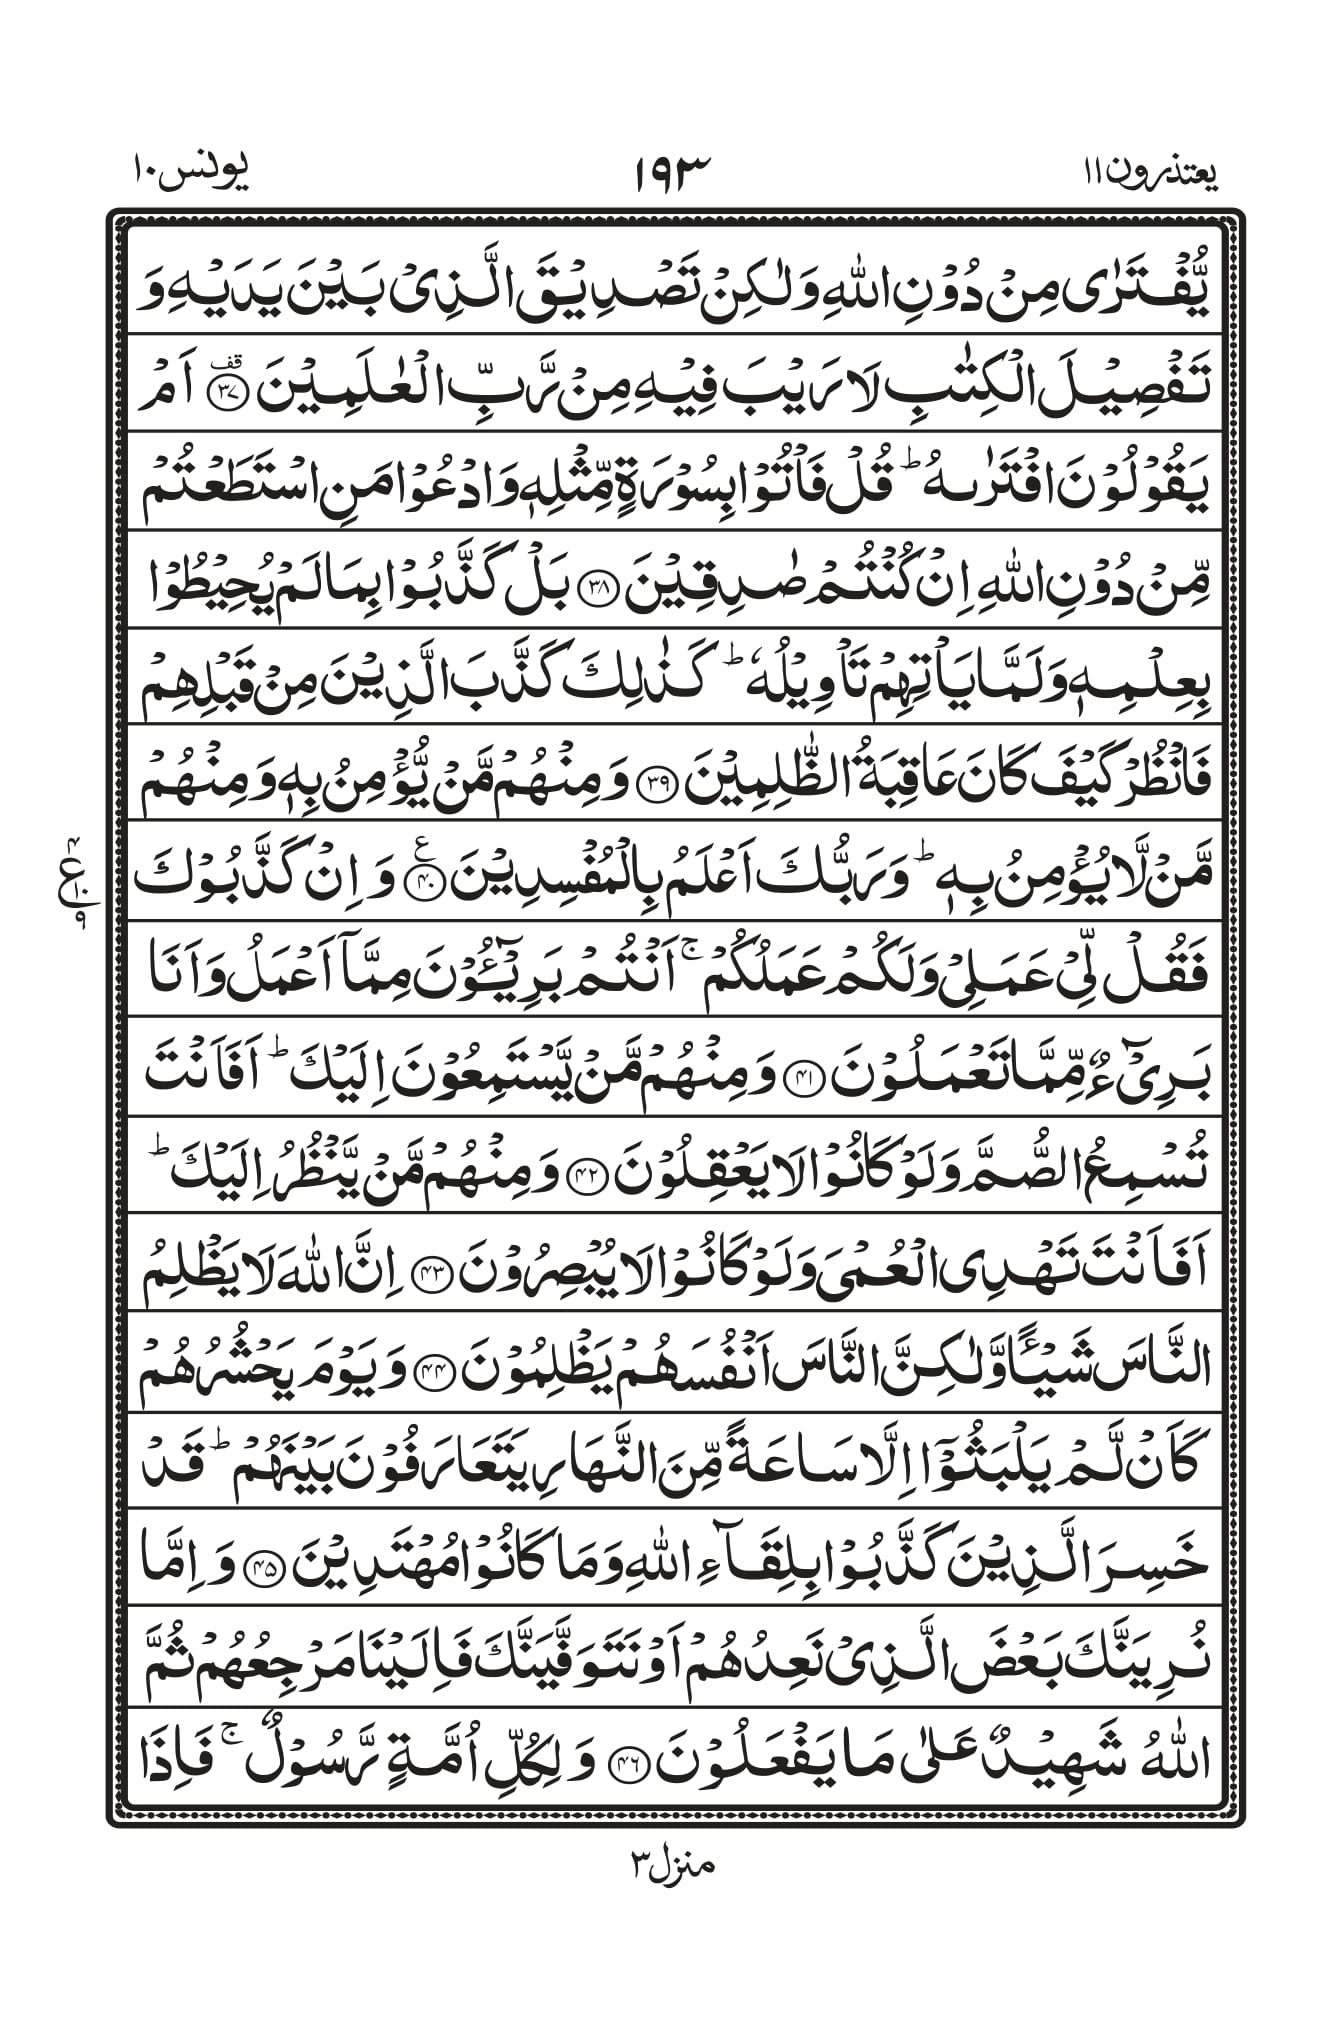 يعتذرون ١١ ١٩٣ يونس ١٠
يُّفْتَرٰى مِنْ دُوْنِ اللّٰهِ وَلٰكِنْ تَصْدِيْقَ الَّذِىْ بَيْنَ يَدَيْهِ وَ
تَفْصِيْلَ الْكِتٰبِ لَا رَيْبَ فِيْهِ مِنْ رَّبِّ الْعٰلَمِيْنَ ﴿۳۷﴾ قف اَمْ
يَقُوْلُوْنَ افْتَرٰىهُ ؕ قُلْ فَاْتُوْا بِسُوْرَةٍ مِّثْلِهٖ وَادْعُوْا مَنِ اسْتَطَعْتُمْ
مِّنْ دُوْنِ اللّٰهِ اِنْ كُنْتُمْ صٰدِقِيْنَ ﴿۳۸﴾ بَلْ كَذَّبُوْا بِمَا لَمْ يُحِيْطُوْا
بِعِلْمِهٖ وَلَمَّا يَاْتِهِمْ تَاْوِيْلُهٗ ؕ كَذٰلِكَ كَذَّبَ الَّذِيْنَ مِنْ قَبْلِهِمْ
فَانْظُرْ كَيْفَ كَانَ عَاقِبَةُ الظّٰلِمِيْنَ ﴿۳۹﴾ وَمِنْهُمْ مَّنْ يُّؤْمِنُ بِهٖ وَمِنْهُمْ
مَّنْ لَّا يُؤْمِنُ بِهٖ ؕ وَرَبُّكَ اَعْلَمُ بِالْمُفْسِدِيْنَ ﴿۴۰﴾ ع وَاِنْ كَذَّبُوْكَ
۴ ع ۱۰ ۹
فَقُلْ لِّىْ عَمَلِىْ وَلَكُمْ عَمَلُكُمْ ۚ اَنْتُمْ بَرِيْٓـــُٔوْنَ مِمَّاۤ اَعْمَلُ وَاَنَا
بَرِىْٓءٌ مِّمَّا تَعْمَلُوْنَ ﴿۴۱﴾ وَمِنْهُمْ مَّنْ يَّسْتَمِعُوْنَ اِلَيْكَ ؕ اَفَاَنْتَ
تُسْمِعُ الصُّمَّ وَلَوْ كَانُوْا لَا يَعْقِلُوْنَ ﴿۴۲﴾ وَمِنْهُمْ مَّنْ يَّنْظُرُ اِلَيْكَ ؕ
اَفَاَنْتَ تَهْدِى الْعُمْىَ وَلَوْ كَانُوْا لَا يُبْصِرُوْنَ ﴿۴۳﴾ اِنَّ اللّٰهَ لَا يَظْلِمُ
النَّاسَ شَيْـــًٔا وَّلٰكِنَّ النَّاسَ اَنْفُسَهُمْ يَظْلِمُوْنَ ﴿۴۴﴾ وَيَوْمَ يَحْشُرُهُمْ
كَاَنْ لَّمْ يَلْبَثُوْۤا اِلَّا سَاعَةً مِّنَ النَّهَارِ يَتَعَارَفُوْنَ بَيْنَهُمْ ؕ قَدْ
خَسِرَ الَّذِيْنَ كَذَّبُوْا بِلِقَآءِ اللّٰهِ وَمَا كَانُوْا مُهْتَدِيْنَ ﴿۴۵﴾ وَاِمَّا
نُرِيَنَّكَ بَعْضَ الَّذِىْ نَعِدُهُمْ اَوْ نَتَوَفَّيَنَّكَ فَاِلَيْنَا مَرْجِعُهُمْ ثُمَّ
اللّٰهُ شَهِيْدٌ عَلٰى مَا يَفْعَلُوْنَ ﴿۴۶﴾ وَلِكُلِّ اُمَّةٍ رَّسُوْلٌ ۚ فَاِذَا
منزل ۳